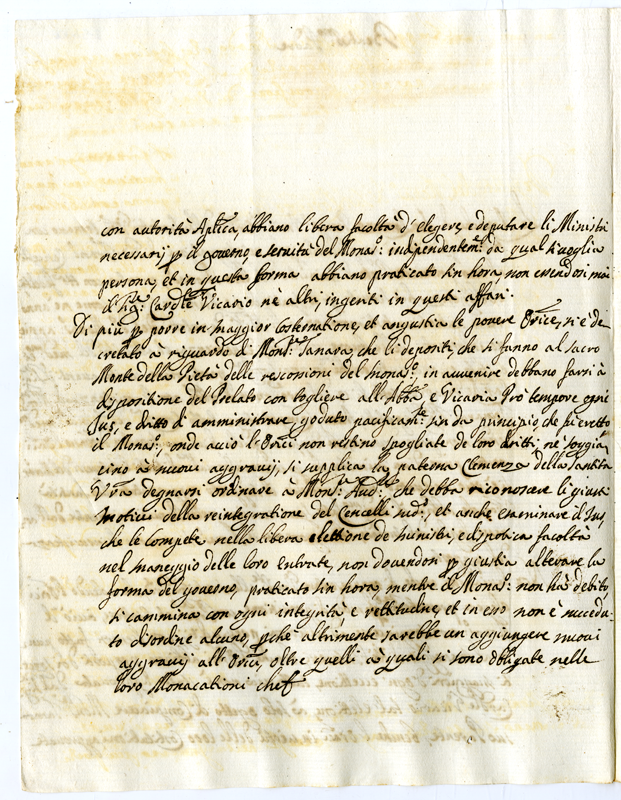 con autorità Aplica, abbiano libera facoltà d'elegere, e deputare li Ministri
necessarij p il governo, e servitù del Monas:o independentem:e da qual si voglia
persona, et in questa forma abbiano praticato sin hora, non essendosi mai
il Sig:r Card:le Vicario nè altri, ingeriti in questi affari.
Di più p porre in maggior costernatione, et angustia le povere Orici, si è de
cretato à riguardo di Mons:r Tanara, che li depositi, che si fanno al sacro
Monte della Pietà delle rescossioni del monas:o, in avvenire debbano farsi à
dispositione del Prelato con togliere all'Abba, e Vicaria Prò tempore ogni
Jus, e dritto di amministrare, goduto pacificam:te sin da principio, che fù eretto
il Monas:o, onde acciò le Orici non restino spogliate de loro dritti, nè soggia
cino à nuovi aggravij, si supplica la paterna Clemenza della Santità
Vra degnarsi ordinare à Mons:r Aud:re, che debba riconoscere li giusti
motivi della reintegratione del Cencelli sud:o, et anche esaminare il Jus,
che le compete nella libera elettione de ministri, e dispotica facoltà
nel maneggio delle loro entrate, non dovendosi p giustitia alterare la
forma del governo, praticato sin hora, mentre il Monas:o non hà debito,
si cammina con ogni integrità, e rettitudine, et in esso non è succedu-
to disordine alcuno, pche altrimente sarebbe un aggiungere nuovi
aggravij all'Orici, oltre quelli à quali si sono obligate nelle
loro Monacationi che